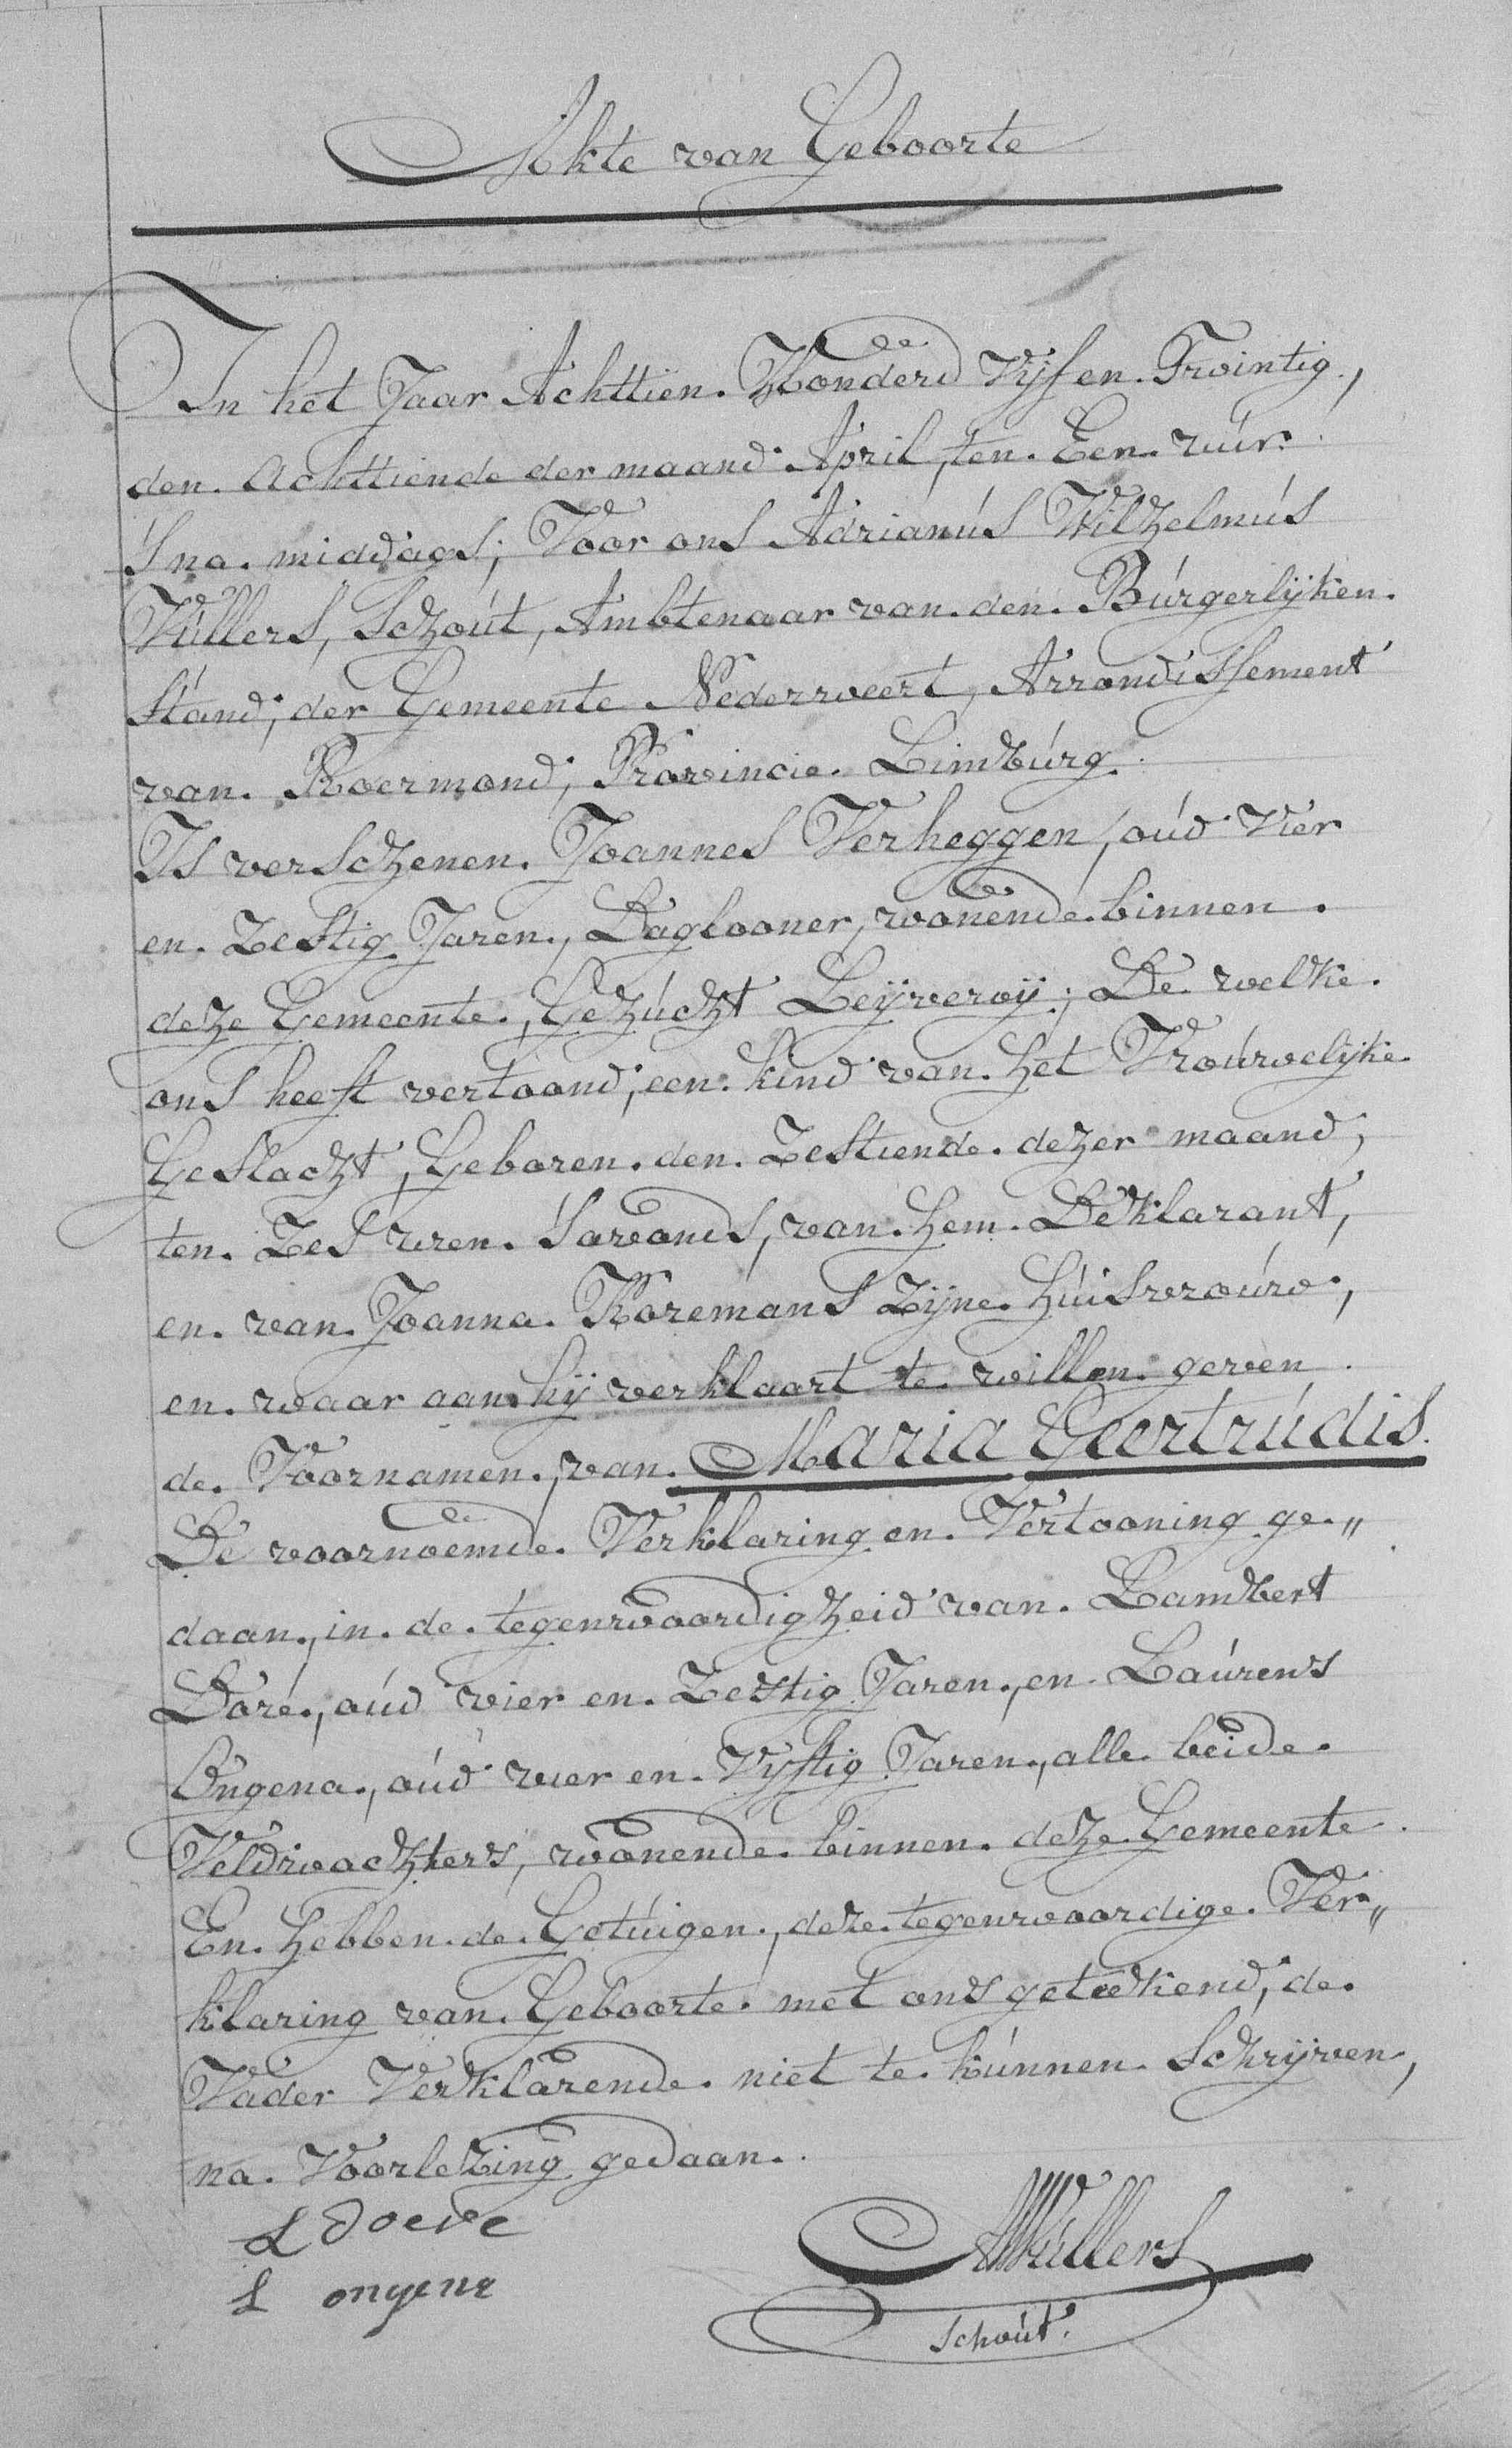 Akte van Geboorte
In het Jaar Achttien Honderd Vyf en Twintig,
den Achttiende der maand April, ten Een uúr
S'na middags, Voor ons Adrianús Wilhelmús
Wúllers, Schoút, Ambtenaar van den Búrgerlijken
stand, der Gemeente Nederweert, Arrondissement
van Roermond, Provincie Limbúrg
Is verschenen Joannes Verheggen, oúd Vier
en Zestig Jaren, Daglooner, wonende binnen
deze Gemeente, Gehúcht Leijveroij, De welke
ons heeft vertoond, een kind van het Vroúwelijke
Geslacht, Geboren den Zestiende dezer maand,
ten Zes uren S'avonds, van hem Deklarant,
en van Joanna Koremans Zijne húisvroúw,
en waar aan hij verklaart te willen geven
de Voornamen, van Maria Geertrúdis.
De voornoemde Verklaring en Vertooning ge„
daan, in de tegenwoordigheid van Lambert
Doré, oúd vier en Zestig Jaren, en Laúrens
Ongena, oúd vier en Vyftig Jaren, alle beide
Veldwachters, wonende binnen deze Gemeente
En hebben de Getúigen, deze tegenwoordige Ver„
klaring van Geboorte met ons geteekend, de
Vader Verklarende niet te kúnnen Schrijven,
na Voorlezing gedaan.
L Doere
L ongena
AWúllers
Schoút.